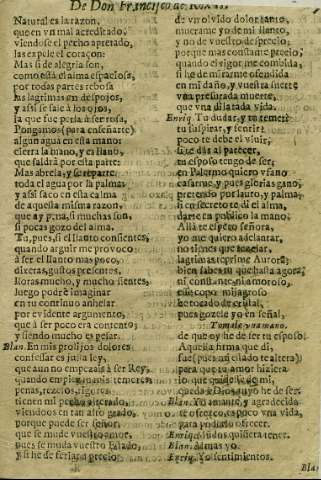 De Don Francisco de Roxas.
Natural es la razon,
que en vn mal acreditado,
viendose el pecho apretado,
las expele el coraçon:
Mas si de alegria son,
como està el alma espaciosa,
por todas partes rebosa
las lagrimas en despojos,
y assi se sale à los ojos,
la que fue perla à ser rosa,
Pongamos (para enseñarte)
algun agua en esta mano:
cierra la mano, y es llano,
que saldrà por esta parte:
Mas abrela, y se reparte
toda el agua por la palma:
y assi saco en esta calma
de aquesta misma razon,
que ay pena, si muchas son,
si pocas gozo del alma.
Tu, pues, si el llanto consientes,
quando arguir me provoco
à ser el llanto mas poco,
dixeras, gustos presentes,
lloras mucho, y mucho sientes,
luego podrè imaginar
en tu continuo anhelar
por evidente argumento,
que à ser poco era contento;
y siendo mucho es pesar.
Blan. En mis prolijos dolores
confessar es justa ley,
que aun no empezais à ser Rey,
quando empiezan mis temores:
penas, rezelos, rigores
tienen mi pecho apretado,
viendoos en tan alto grado,
porque puede ser señor,
que se mude vuestro amor,
pues se muda vuestro estado,
y si he de ser la à precio
de vn olvido dolor tanto,
muerame yo de mi llanto,
y no de vuestro desprecio:
porque mas constante precio,
quando el vigor me combida,
si he de mirarme ofendida
en mi daño, y vuestra suerte
vna presurada muerte,
que vna dilatada vida.
Enriq. Tu dudar, y tu temer:
tu suspirar, y sentir:
poco te debe el vivir,
si te dàs al parecer,
tu esposo tengo de ser;
en Palermo quiero vfano
casarme, y pues glorias gano,
pretendo por lauro, y palma,
si en secreto te dì el alma,
darte en publico la mano:
Allà te espero señora,
yo me quiero adelantar,
no tienes que rezelar,
lagrimas teprime Aurora;
bien sabes tu que hasta agora,
mi constante, mi amoroso,
esse copo milagroso
he tocado de cristal,
pues gozele yo en señal,
Tomale vna mano.
de que oy he de ser tu esposo.
Aquella firma que di,
fue (pues mi estado te altera)
para que tu amor hiziera
lo que quiso de mi,
Queda à Dios, tuyo he de ser.
Blan. Yo amante, y agradecida
te ofrezco, es poco vna vida,
para poderlo ofrecer.
Enriq. Todos quisiera tener.
Blan. Almas yo.
Enriq. Yo sentimientos.
Blan.